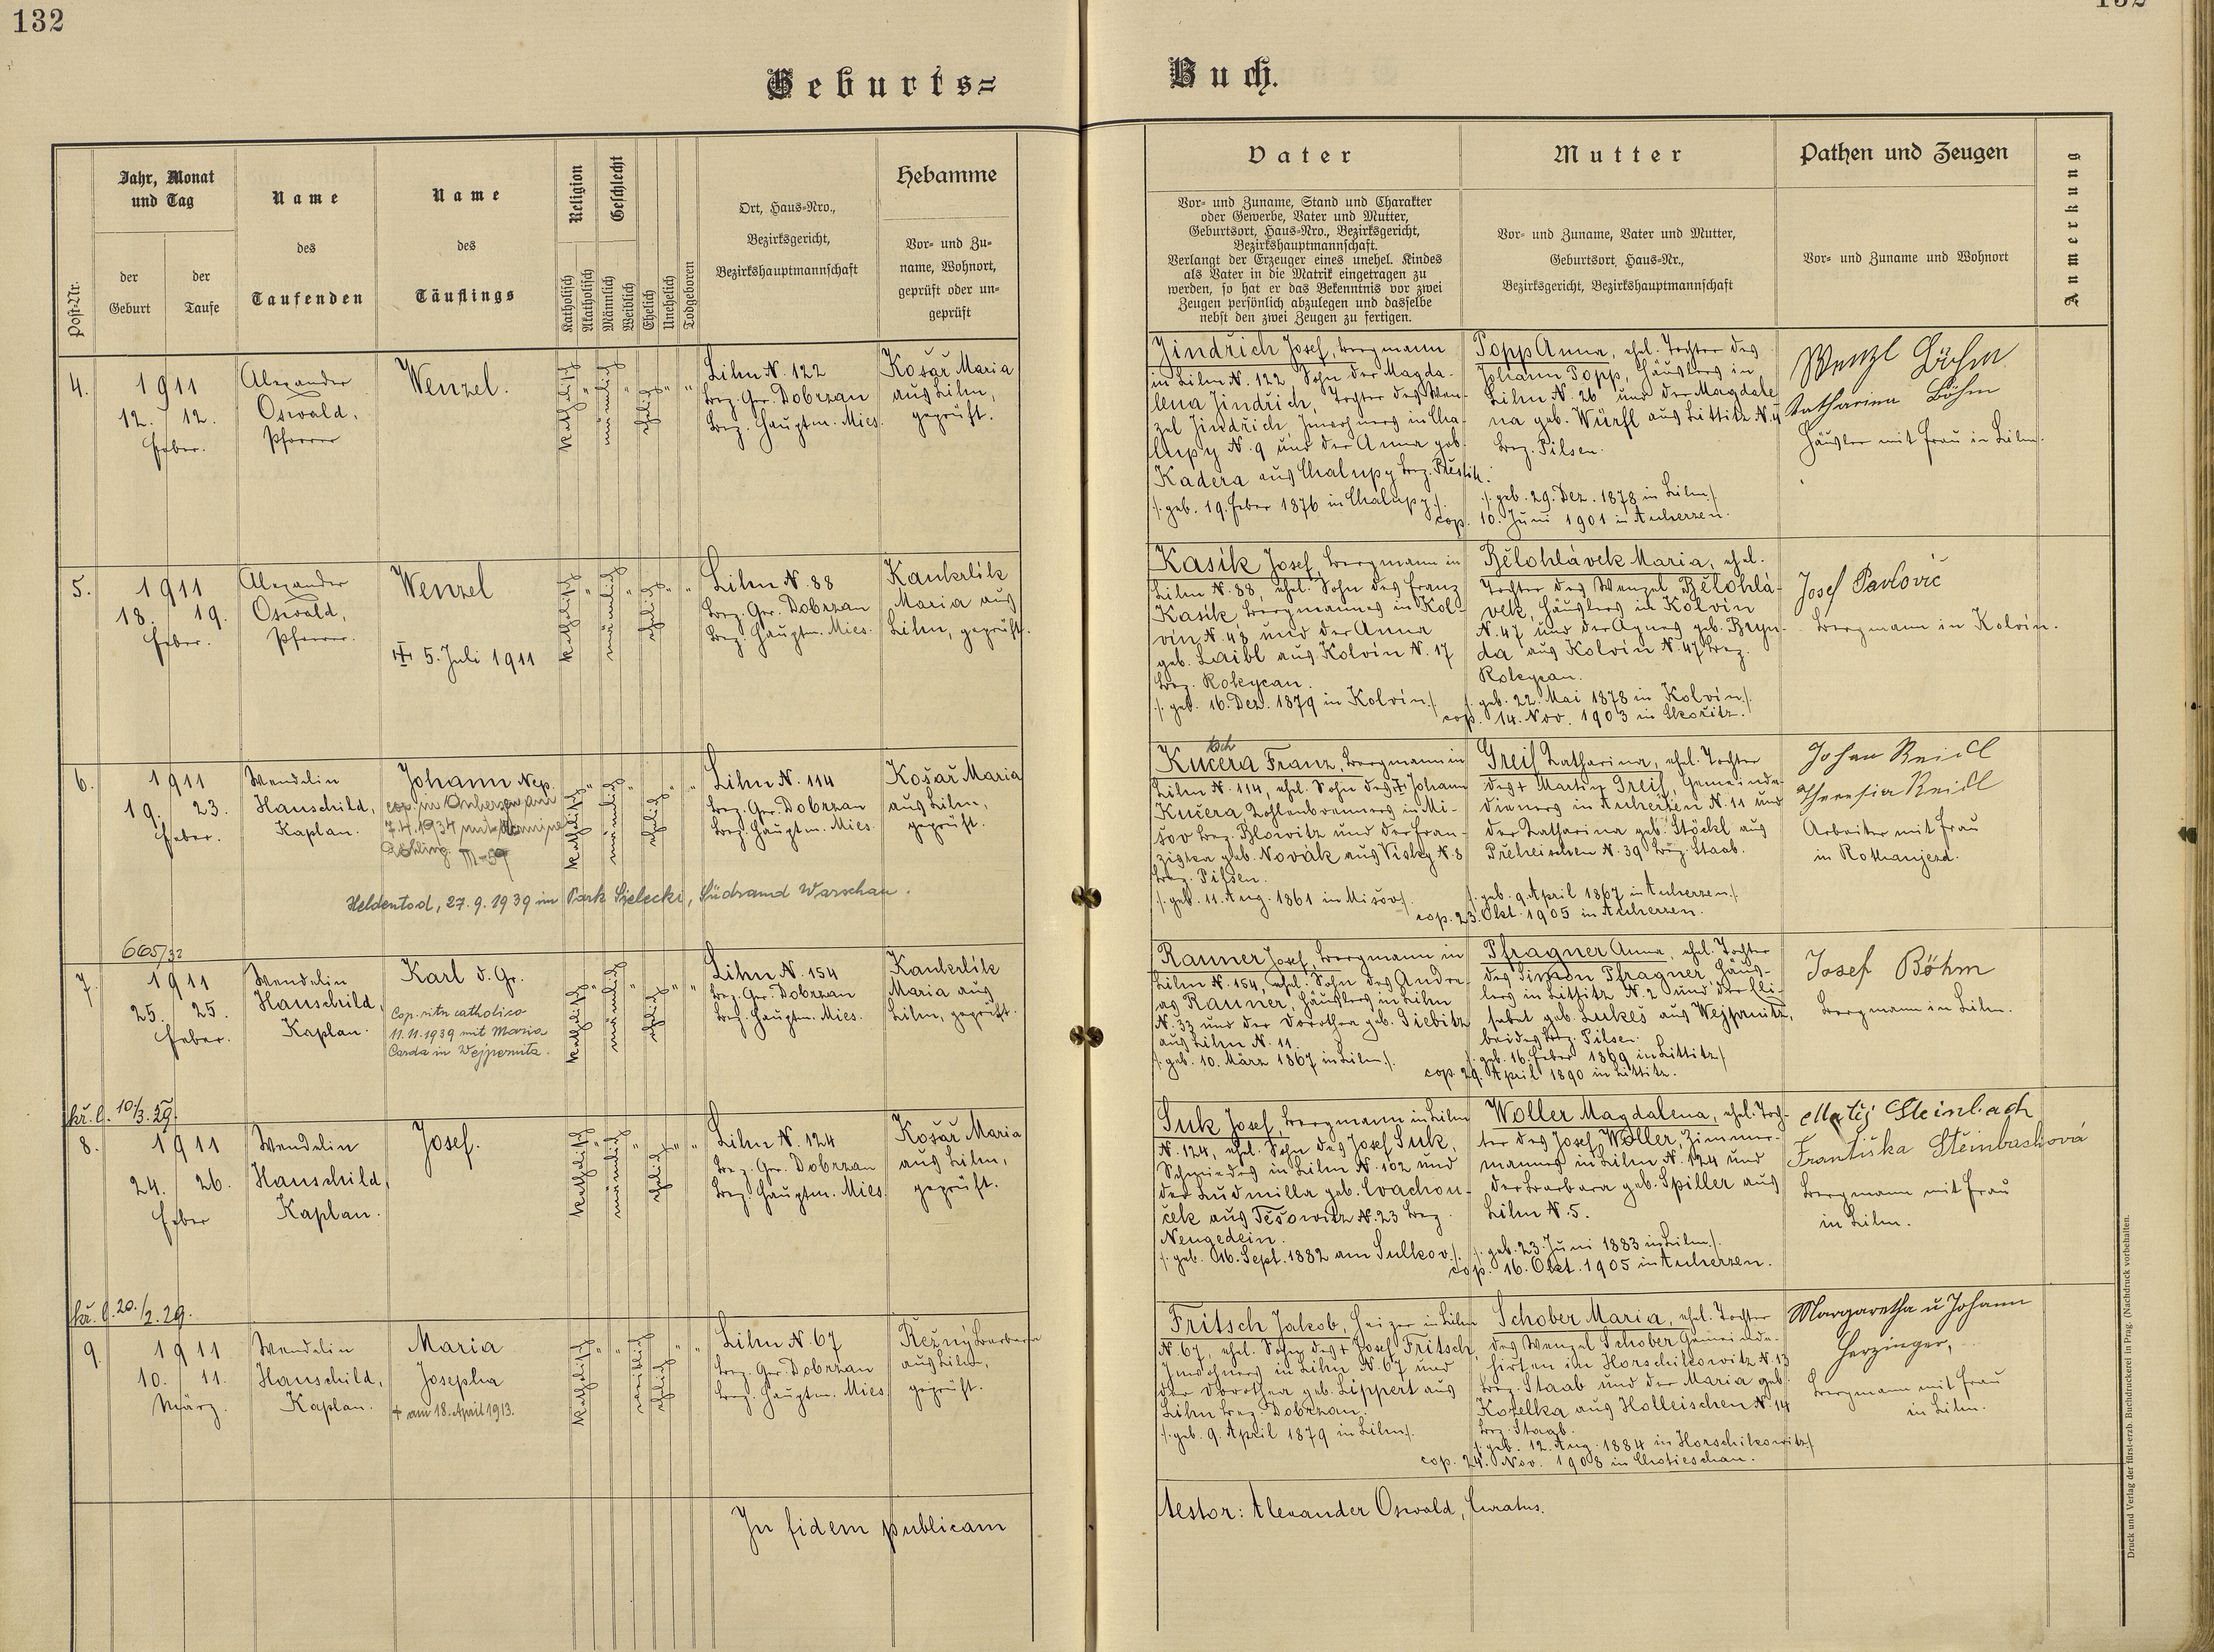 132
132
Geburts=
Buch.
Post-Nr.
Jahr, Monat
und Tag
der
Geburt
der
Taufe
Name
des
Taufenden
Name
des
Täuflings
Religion
Katholisch
Akatholisch
Geschlecht
Männlich
Weiblich
Ehelich
Unehelich
Todgeboren
Ort, Haus=Nro.,
Bezirksgericht,
Bezirkshauptmannschaft
Hebamme
Vor= und Zu=
name, Wohnort,
geprüft oder un=
geprüft
Vater
Vor= und Zuname, Stand und Charakter
oder Gewerbe, Vater und Mutter,
Geburtsort, Haus=Nro., Bezirksgericht,
Bezirkshauptmannschaft.
Verlangt der Erzeuger eines unehel. Kindes
als Vater in die Matrik eingetragen zu
werden, so hat er das Bekenntnis vor zwei
Zeugen persönlich abzulegen und dasselbe
nebst den zwei Zeugen zu fertigen.
Mutter
Vor= und Zuname, Vater und Mutter,
Geburtsort, Haus=Nr.,
Bezirksgericht, Bezirkshauptmannschaft
Pathen und Zeugen
Vor= und Zuname und Wohnort
Anmerkung
4.
1911
12. 12.
Feber.
Alexander
Oswald,
Pfarrer
Wenzel.
katholisch
"
männlich
"
ehelich
"
"
Lihn N. 122
Bez. Ger. Dobrzan
Bez. Hauptm. Mies.
Košař Maria
aus Lihn,
geprüft.
Jindřich Josef, Bergmann
in Lihn N. 122, Sohn der Magda-
lena Jindřich, Tochter des Wen-
zel Jindřich, Inwohners in Cha-
lupy N. 9 und der Anna geb.
Kadera aus Chalupy Bez. Přestitz.
/: geb. 19. Feber 1876 in Chalupy :/.
Popp Anna, ehel. Tochter des
Johann Popp, Häuslers in
Lihn N. 26 und der Magdale-
na geb. Würfl aus Littitz N. 4
Bez. Pilsen.
/: geb. 29. Dez. 1878 in Lihn :/
cop. 10. Juni 1901 in Auherzen.
Wenzl Böhm
Katharina Böhm
Häusler mit Frau in Lihn.
5.
1911
18. 19.
Feber.
Alexander
Oswald,
Pfarrer.
Wenzel
5. Juli 1911
katholisch
"
männlich
"
ehelich
"
"
Lihn N. 88
Bez. Ger. Dobrzan
Bez. Hauptm. Mies.
Kankrlik
Maria aus
Lihn, geprüft.
Kasík Josef, Bergmann in
Lihn N. 88, ehel. Sohn des Franz
Kasík, Bergmannes in Kol-
vín N. 48 und der Anna
geb. Laibl aus Kolvín N. 17
Bez. Rokycan.
/: geb. 16. Dez. 1879 in Kolvín :/
Bělohlávek Maria, ehel.
Tochter des Wenzel Bělohlá-
vek, Häuslers in Kolvín
N. 47 und der Agnes geb. Bryn-
da aus Kolvín N. 47 Bez.
Rokycan.
/: geb. 22. Mai 1878 in Kolvín :/.
cop. 14. Nov. 1903 in Skořitz.
Josef Pavlovič
Bergmann in Kolvín.
6.
1911
19. 23.
Feber.
Wendelin
Hauschild,
Kaplan.
Johann Nep.
cop. in Auherzen am
7.4.1934 mit
Heldentod, 27.9.1939 im Park Sielecki, Südrand Warschau.
katholisch
"
männlich
"
ehelich
"
"
Lihn N. 114
Bez. Ger. Dobrzan
Bez. Hauptm. Mies.
Košař Maria
aus Lihn,
geprüft.
tsch
Kučera Franz, Bergmann in
Lihn N. 114, ehel. Sohn des Johann
Kučera, Kohlenbrenners in Mi-
šov Bez. Blowitz und der Fran-
ziska geb. Novák aus Visky N. 8
Bez. Pilsen.
/: geb. 11. Aug. 1861 in Mišov :/
Greif Katharina, ehel. Tochter
des + Martin Greif, Gemeinde-
dieners in Auherzen N. 11 und
der Katharina geb. Stöckl aus
Přeheischen N. 39 Bez. Staab.
/: geb. 9. April 1867 in Auherzen :/
cop. 23. Okt. 1905 in Auherzen.
Johan Reidl
Theresia Reidl
Arbeiter mit Frau
in Rothaujezd.
665/32
7.
1911
25. 25.
Feber.
Wendelin
Hauschild,
Kaplan.
Karl d. Gr.
Cop. ritu catholico
11.11.1939 mit Maria
Carda in Wejpernitz.
katholisch
"
männlich
"
ehelich
"
"
Lihn N. 154
Bez. Ger. Dobrzan
Bez. Hauptm. Mies.
Kankrlik
Maria aus
Lihn, geprüft.
Rauner Josef, Bergmann in
Lihn N. 154, ehel. Sohn des Andre-
as Rauner, Häuslers in Lihn
N. 33 und der Dorothea geb. Siebitz
aus Lihn N. 11.
/: geb. 10. März 1867 in Lihn :/.
Pfragner Anna, ehel. Tochter
des Simon Pfragner, Häus-
lers in Littitz N. 2 und der Eli-
sabet geb. Lukeš aus Wejprnitz,
beides Bez. Pilsen.
/: geb. 16. Feber 1869 in Littitz :/
cop. 29. April 1890 in Littitz.
Josef Böhm
Bergmann in Lihn.
10./3. 29.
8.
1911
24. 26.
Feber
Wendelin
Hauschild,
Kaplan.
Josef.
katholisch
"
männlich
"
ehelich
"
"
Lihn N. 124
Bez. Ger. Dobrzan
Bez. Hauptm. Mies.
Košař Maria
aus Lihn,
geprüft.
Suk Josef, Bergmann in Lihn
N. 124, ehel. Sohn des Josef Suk,
Schmiedes in Lihn N. 102 und
der Ludmilla geb. Cvachou-
ček aus Tešowitz N. 23 Bez.
Neugedein.
/: geb. 16. Sept. 1882 am Sulkov :/.
Woller Magdalena, ehel. Toch-
ter des Josef Woller, Zimmer-
mannes in Lihn N. 124 und
der Barbara geb. Spiller aus
Lihn N. 5.
/: geb. 23. Juni 1883 in Lihn :/.
cop. 16. Okt. 1905 in Auherzen.
Matěj Steinbach
Františka Šteinbachová
Bergmann mit Frau
in Lihn.
20./2. 29.
9.
1911
10. 11.
März.
Wendelin
Hauschild,
Kaplan.
Maria
Josepha
+ am 18. April 1913.
katholisch
"
"
weiblich
ehelich
"
"
Lihn N. 67
Bez. Ger. Dobrzan
Bez. Hauptm. Mies
Řežný Barbara
aus Lihn,
geprüft.
Fritsch Jakob, Heizer in Lihn
N. 67, ehel. Sohn des + Josef Fritsch,
Inwohners in Lihn N. 67 und
der Dorothea geb. Lippert aus
Lihn Bez. Dobrzan.
/: geb. 9. April 1879 in Lihn :/.
Schober Maria, ehel. Tochter
des Wenzel Schober, Gemeinde-
hirten in Horschikowitz N. 13
Bez. Staab und der Maria geb.
Kotelka aus Holleischen N. 14
Bez. Staab.
/: geb. 12. Aug. 1884 in Horschikowitz :/
cop. 24. Nov. 1908 in Chotieschau.
Margaretha u Johann
Herzinger,
Bergmann mit Frau
in Lihn.
In fidem publicam
testor: Alexander Oswald, Curatus.
Druck und Verlag der fürst-erzb. Buchdruckerei in Prag. (Nachdruck vorbehalten.